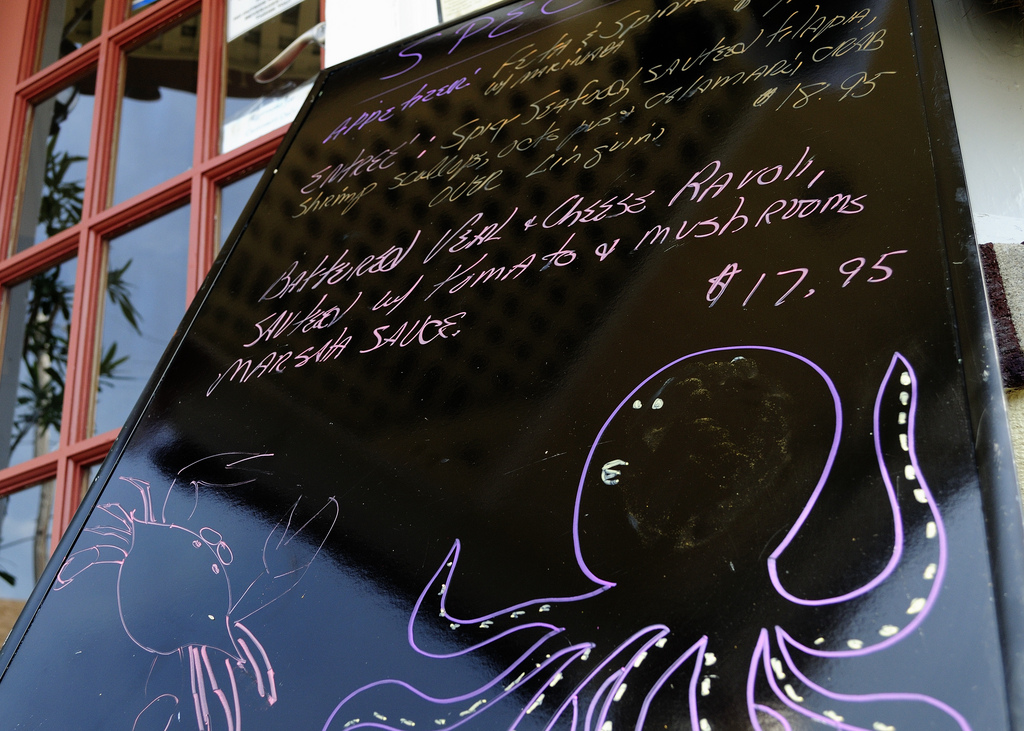 SPEC
APPETIZER: FETA & SPINA
W/ MARINARA
ENTREE: SPICY SEAFOOD SAUTEED TILAPIA,
SHRIMP SCALLOPS, OCTOPUS & CALAMARI, CRAB
OVER LINGUINI $18.95
BATTERED VEAL & CHEESE RAVOLI,
SAUTEED W/ TOMATO & MUSHROOMS
MARSALA SAUCE. $17.95